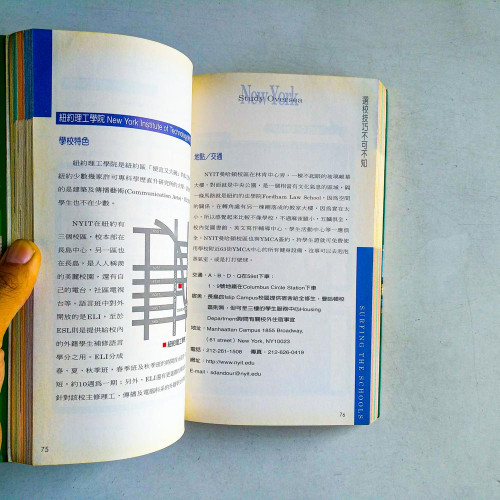 紐約理工學院 New York Institute of Technology
學校特色
紐約理工學院是紐約區「便宜又大碗」
紐約少數幾家許可專科學歷直升研究所的
的是建築及傳播藝術(Communication Arts)
學生也不在少數。
NYIT在紐約有
三個校區，校本部在
長島中心，另一區也
在長島，是人人稱讚
的美麗校園，還有自
己的電台、社區電視
台等。語言班中對外
開放的是ELI，至於
ESL則是提供給校內
的外籍學生補修語言
學分之用。ELI分成
春、夏、秋季班，春季班及秋季班
班，約10週為一期；另外，ELI還有
針對該校主修理工、傳播及電腦科系的
紐約理工學院
75
New York
Study Oversea
選校技巧不可不知
地點／交通
NYIT曼哈頓校區在林肯中心旁，一棟不起眼的玻璃帷幕
大樓，對面就是中央公園，是一個相當有文化氣息的區域，隔
一條馬路就是有名的法學院Fordham Law School，因為空間
的關係，在轉角處有另一棟剛落成的教室大樓，因為實在太
小，所以感覺起來比較不像學校，不過麻雀雖小，五臟俱全，
校內從圖書館、英文寫作輔導中心、學生活動中心等一應俱
全。NYIT曼哈頓校區也與YMCA簽約，持學生證就可免費使
用學校附近63街YMCA中心的所有健身設備，沒事可以去泡泡
蒸氣室，或是打打壁球。
交通：A、B、D、Q在59st下車
1、9號地鐵在Columbus Circle Station下車
住宿：長島的Islip Campus校區提供宿舍給全修生，曼哈頓校
區則無，但可至三樓的學生服務中心Housing
Department詢問有關校外住宿事宜
地址：Manhaattan Campus 1855 Broadway,
( 61 street ) New York, NY10023
電話：212-261-1508 傳真：212-626-0419
網址：http://www.nyit.edu
E-mail：edandour@nyit.edu
SURFING THE SCHOOLS
76